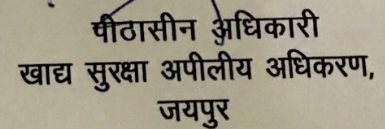 पीठासीन अधिकारी
खाद्य सुरक्षा अपीलीय अधिकरण,
जयपुर